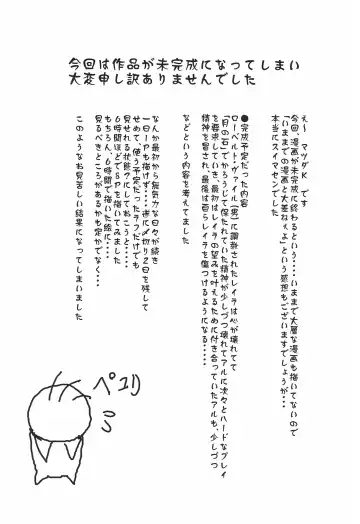 今回は作品が未完成になってしまい
大変申し訳ありませんでした
え~ マツダKです
今回、漫画が未完成で終わるという・・・いままで大層な漫画も描いてないので
「いままでの漫画と大差ねぇよ」という感想もございますでしょうが・・・
本当にスイマセンでした
●完成予定だった内容
ローベルト・ヴァイル(男)に調教されたレイラは心が壊れてて
「月の石」でかろうじて保たれていた精神が少しづつ壊れてアルに次々とハードなプレイ
を要求していき、最初はレイラの望みを叶えるために付き合っていたアルも、少しづつ
精神を冒され、最後は自らレイラを傷つけるようになる・・・・
などという内容を考えてました
なんか最初から無気力な日々が続き
一日1Pも描けず・・・遂に〆切り2日を残して
せめて、使う予定だったラフだけでも
見せれる状態クォにしておこうと・・・・
6時間ほどで5Pを描いてみました
もちろん、6時間で描いた絵に・・・
見るべきところがあるかも定かでなく・・・
このようなお見苦しい結果になってしまいました
ペコリ